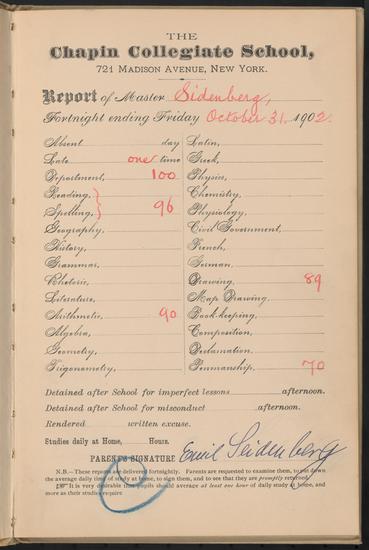 THE
Chapin Collegiate School,
721 MADISON AVENUE, NEW YORK.
Report of Master Sidenberg,
Fortnight ending Friday October 31, 1902.
Absent day
Late one time
Deportment, 100
Reading, }
Spelling, } 96
Geography,
History,
Grammar,
Rhetoric,
Literature,
Arithmetic, 90
Algebra,
Geometry,
Trigonometry,
Latin,
Greek,
Physics,
Chemistry,
Physiology,
Civil Government,
French,
German,
Drawing, 89
Map Drawing,
Book-keeping,
Composition,
Declamation,
Penmanship, 70
Detained after School for imperfect lessons afternoon.
Detained after School for misconduct afternoon.
Rendered written excuse.
Studies daily at Home, Hours.
PARENT'S SIGNATURE Emil Seidenberg
N.B.—These reports are delivered fortnightly. Parents are requested to examine them, to put down
the average daily time of study at home, to sign them, and to see that they are promptly returned.
It is very desirable that pupils should average at least one hour of daily study at home, and
more as their studies require